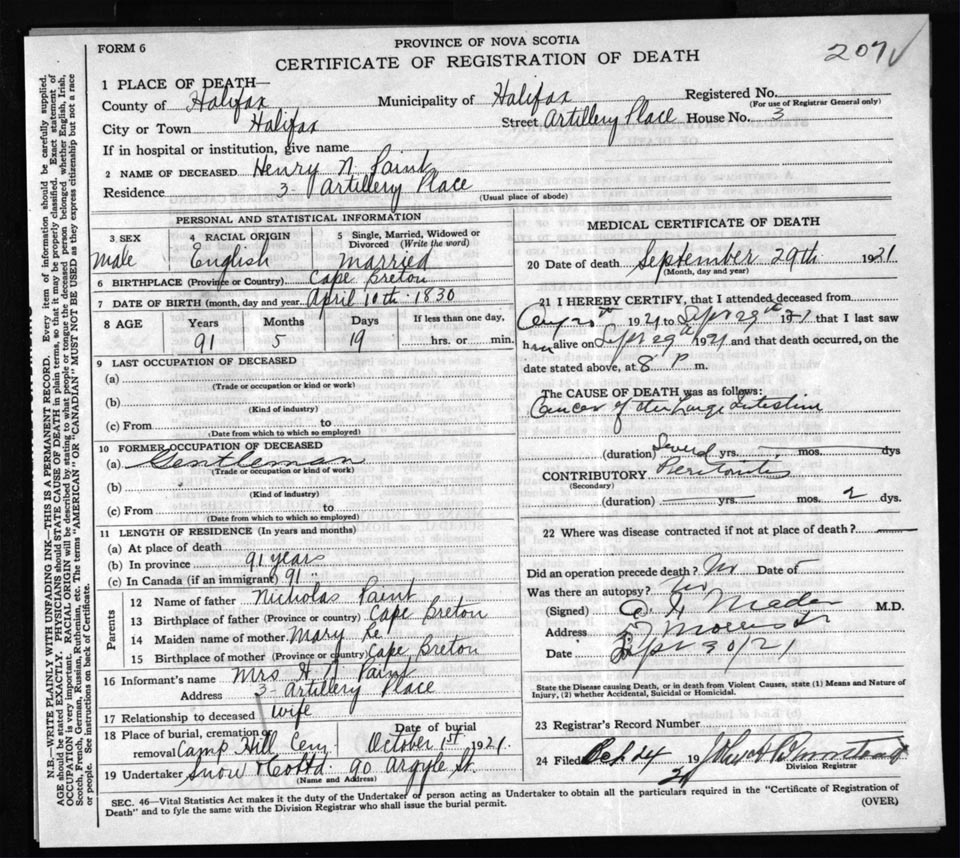 207 ✓
FORM 6
PROVINCE OF NOVA SCOTIA
CERTIFICATE OF REGISTRATION OF DEATH
1 PLACE OF DEATH—
County of Halifax Municipality of Halifax Registered No.
(For use of Registrar General only)
City or Town Halifax Street Artillery Place House No. 3
If in hospital or institution, give name
2 NAME OF DECEASED Henry N. Paint
Residence 3 - Artillery Place
(Usual place of abode)
PERSONAL AND STATISTICAL INFORMATION
3 SEX 4 RACIAL ORIGIN 5 Single, Married, Widowed or Divorced (Write the word)
Male English Married
6 BIRTHPLACE (Province or Country) Cape Breton
7 DATE OF BIRTH (month, day and year) April 10th - 1830
8 AGE Years Months Days If less than one day,
91 5 19 hrs. or min.
9 LAST OCCUPATION OF DECEASED
(a)
(Trade or occupation or kind or work)
(b)
(Kind of industry)
(c) From to
(Date from which to which so employed)
10 FORMER OCCUPATION OF DECEASED
(a) Gentleman
(Trade or occupation or kind of work)
(b)
(Kind of industry)
(c) From to
(Date from which to which so employed)
11 LENGTH OF RESIDENCE (In years and months)
(a) At place of death
(b) In province 91 years
(c) In Canada (if an immigrant) 91 "
Parents
12 Name of father Nicholas Paint
13 Birthplace of father (Province or country) Cape Breton
14 Maiden name of mother Mary Le
15 Birthplace of mother (Province or country) Cape Breton
16 Informant's name Mrs H. N. Paint
Address 3 - Artillery Place
17 Relationship to deceased wife
18 Place of burial, cremation or removal Camp Hill Cem. Date of burial October 1st 1921.
19 Undertaker Snow & Co Ltd. 90 Argyle St.
(Name and Address)
MEDICAL CERTIFICATE OF DEATH
20 Date of death September 29th 1921
(Month, day and year)
21 I HEREBY CERTIFY, that I attended deceased from
1921 to Sept 29th 1921 that I last saw
him alive on Sept 29th 1921 and that death occurred, on the
date stated above, at 8 P m.
The CAUSE OF DEATH was as follows:
Cancer of the Large Intestine
(duration) Several yrs. mos. dys
CONTRIBUTORY Peritonitis
(Secondary)
(duration) yrs. mos. 2 dys.
22 Where was disease contracted if not at place of death?
Did an operation precede death? No Date of
Was there an autopsy? No
(Signed) Mader M.D.
Address Morris St
Date Sept 30/21
State the Disease causing Death, or in death from Violent Causes, state (1) Means and Nature of
Injury, (2) whether Accidental, Suicidal or Homicidal.
23 Registrar's Record Number
24 Filed 19
Division Registrar
SEC. 46—Vital Statistics Act makes it the duty of the Undertaker or person acting as Undertaker to obtain all the particulars required in the "Certificate of Registration of
Death" and to fyle the same with the Division Registrar who shall issue the burial permit. (OVER)
N.B.—WRITE PLAINLY WITH UNFADING INK—THIS IS A PERMANENT RECORD. Every item of information should be carefully supplied.
AGE should be stated EXACTLY. PHYSICIANS should STATE CAUSE OF DEATH in plain terms, so that it may be properly classified. Exact statement of
OCCUPATION is very important. RACIAL ORIGIN will be described by stating to what people or tongue the deceased person belonged whether English, Irish,
Scotch, French, German, Russian, Ruthenian, etc. The terms "AMERICAN" OR "CANADIAN" MUST NOT BE USED as they express citizenship but not a race
or people. See instructions on back of Certificate.